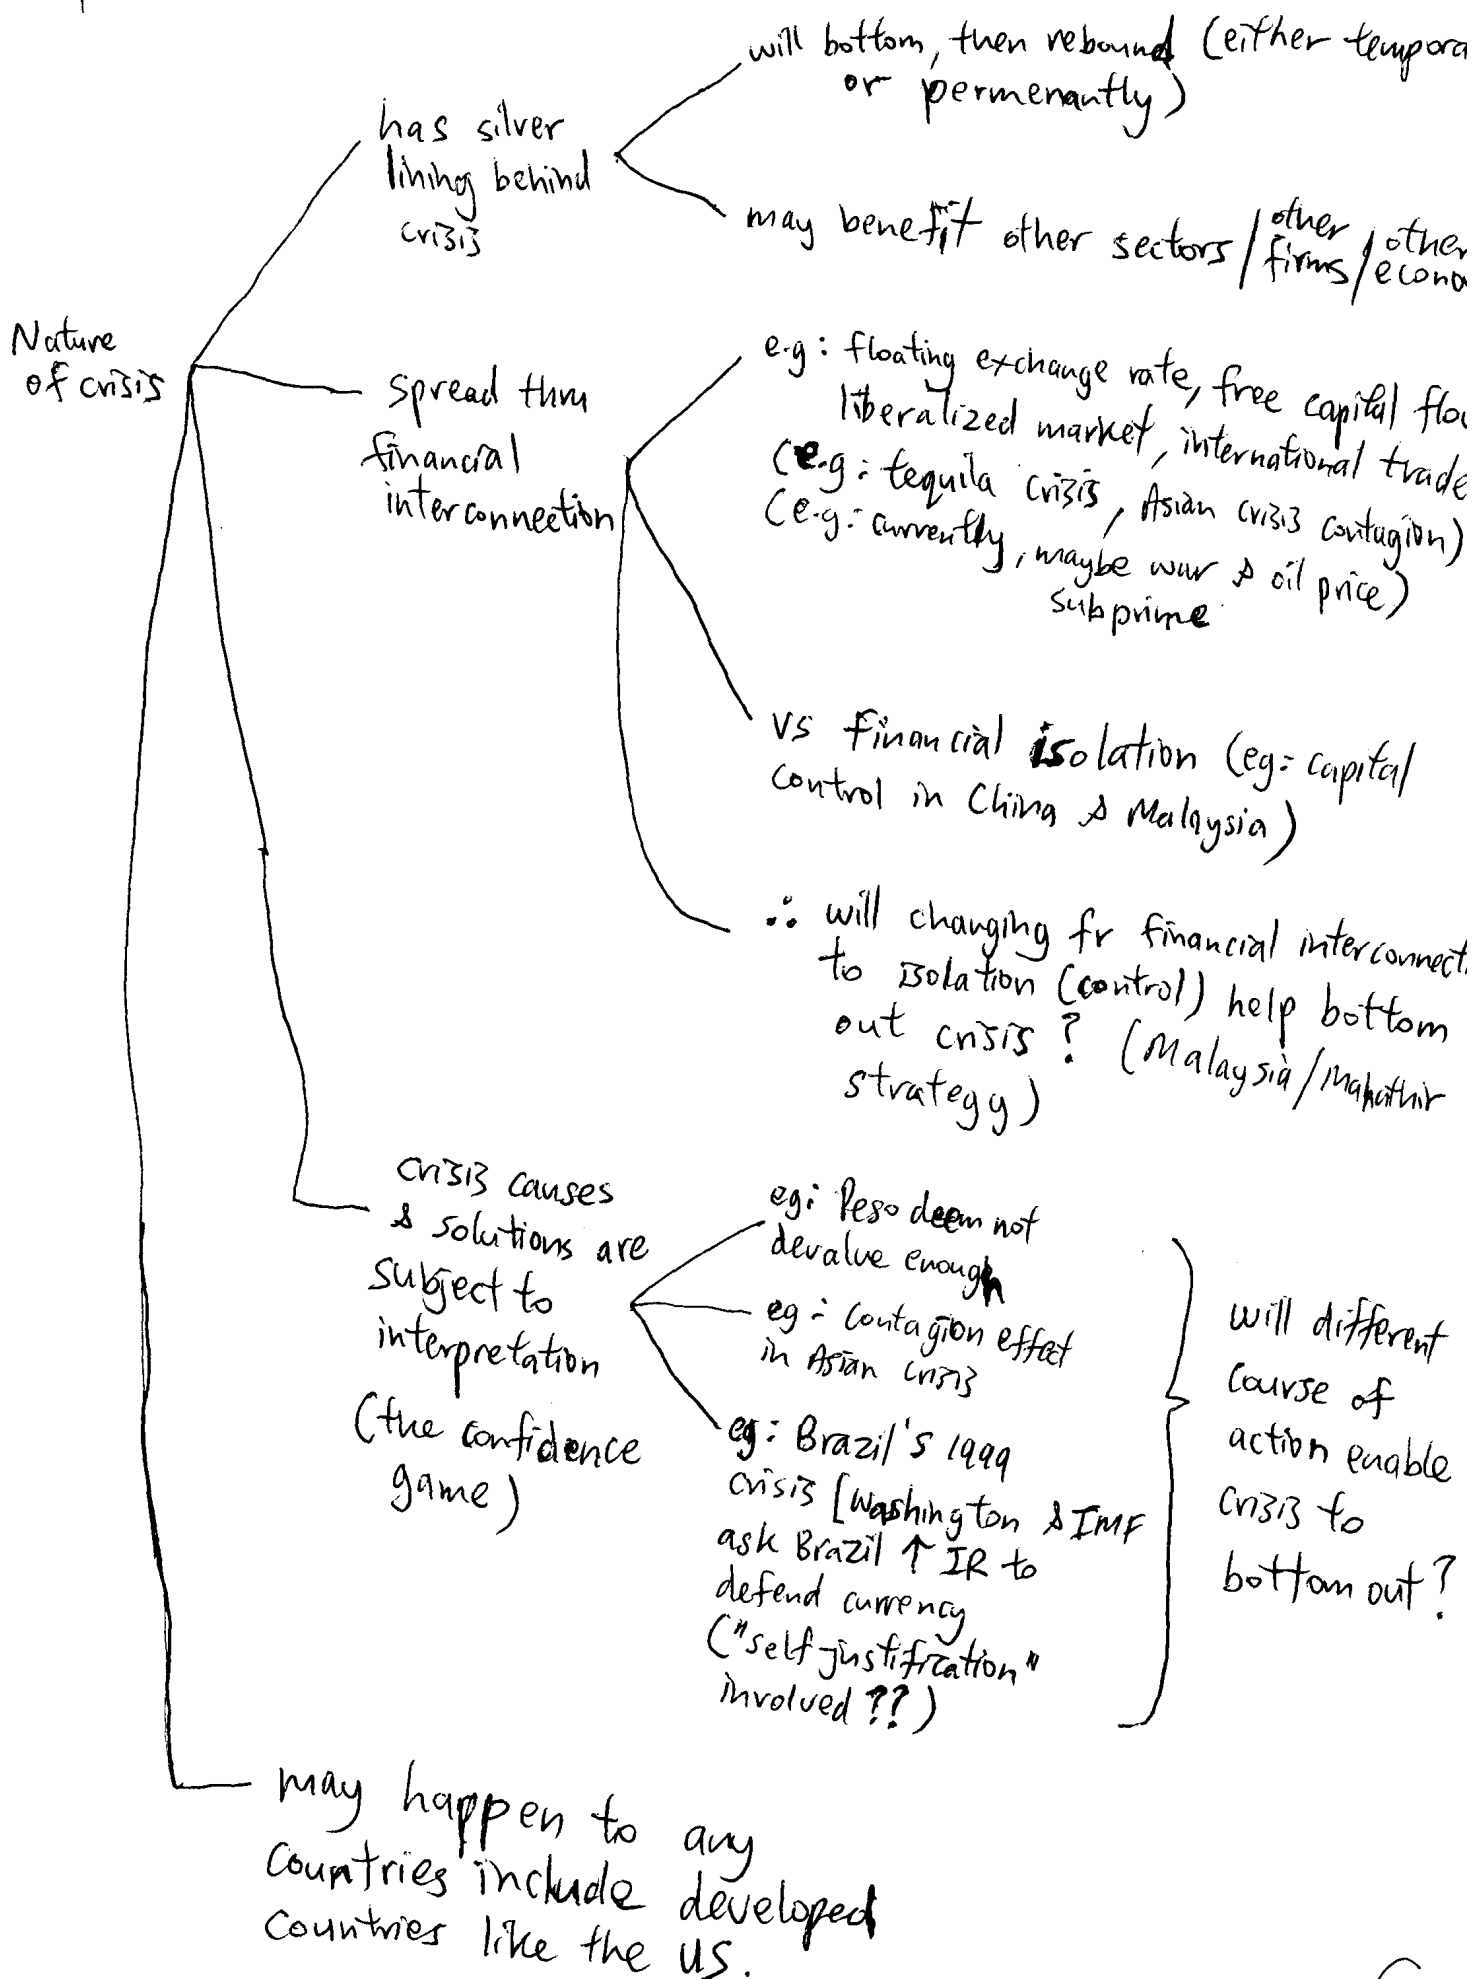 Nature
of crisis
has silver
lining behind
crisis
will bottom, then rebound (either tempora
or permenantly)
may benefit other sectors / other firms / other econo
spread thru
financial
interconnection
e.g : floating exchange rate, free capital flo
liberalized market, international trade
(e.g : tequila crisis, Asian crisis contagion)
(e.g : currently, maybe war & oil price)
subprime
vs financial isolation (eg: capital
control in China & Malaysia)
∴ will changing fr financial interconnect
to isolation (control) help bottom
out crisis ? (Malaysia/Mahathir
strategy)
crisis causes
& solutions are
subject to
interpretation
(the confidence
game)
eg: Peso deem not
devalue enough
eg: Contagion effect
in Asian crisis
eg: Brazil's 1999
crisis [Washington & IMF
ask Brazil ↑ IR to
defend currency
("self-justification"
involved ??)
will different
course of
action enable
crisis to
bottom out?
may happen to any
countries include developed
countries like the US.